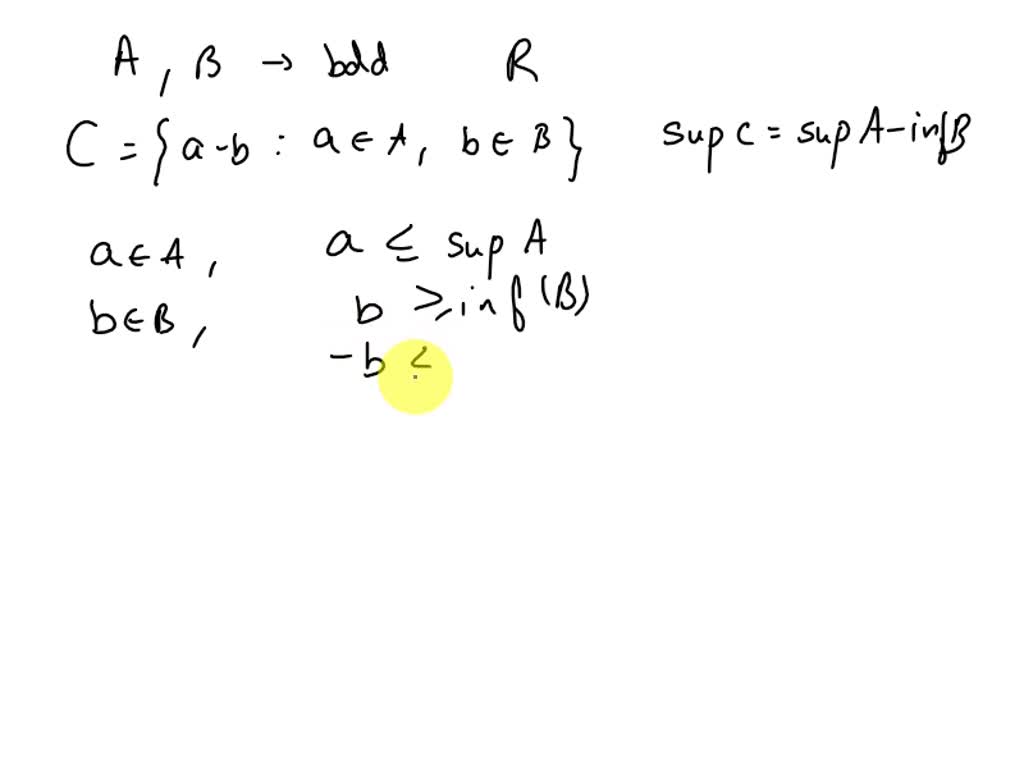 A, B → bdd R
C = {a - b : a ∈ A, b ∈ B} sup C = sup A - inf B
a ∈ A, a ≤ sup A
b ∈ B, b ≥ inf(B)
-b <